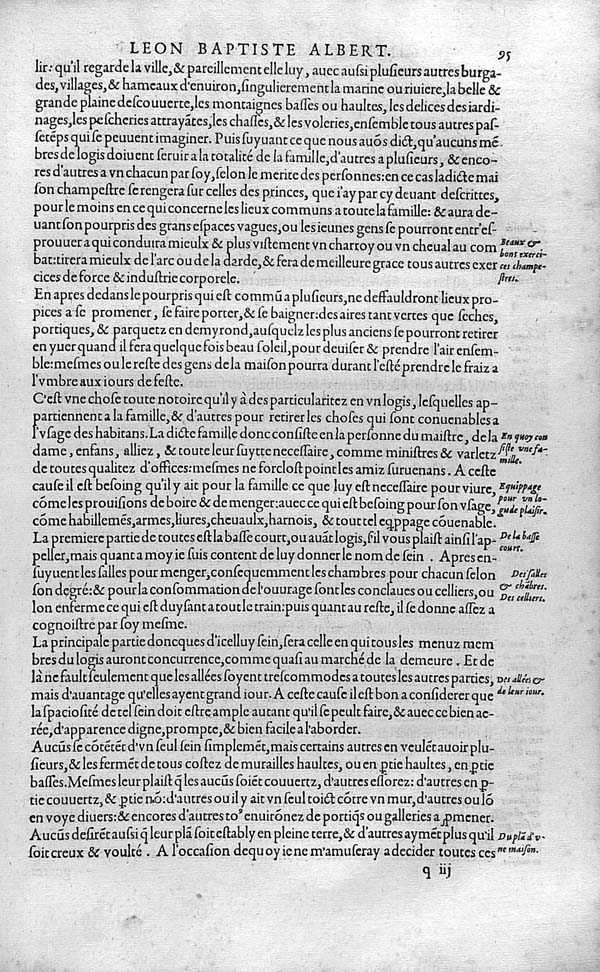 LEON BAPTISTE ALBERT. 95
lir: qu'il regarde la ville, & pareillement elle luy, auec aussi plusieurs autres burga-
des, villages, & hameaux d'enuiron, singulierement la marine ou riuiere, la belle &
grande plaine descouuerte, les montaignes basses ou haultes, les delices des iardi-
nages, les pescheries attrayãtes, les chasses, & les voleries, ensemble tous autres pas-
setẽps qui se peuuent imaginer. Puis suyuant ce que nous auõs dict, qu'aucuns mẽ
bres de logis doiuent seruir a la totalité de la famille, d'autres a plusieurs, & enco-
res d'autres a vn chacun par soy, selon le merite des personnes: en ce cas ladicte mai
son champestre se rengera sur celles des princes, que i'ay par cy deuant descrittes,
pour le moins en ce qui concerne les lieux communs a toute la famille: & aura de-
uant son pourpris des grans espaces vagues, ou les ieunes gens se pourront entr'es-
prouuer a qui conduira mieulx & plus vistement vn chartoy ou vn cheual au com
bat: tirera mieulx de l'arc ou de la darde, & fera de meilleure grace tous autres exer
cices de force & industrie corporele.
Beaux &
bons exerci-
ces champe-
stres.
En apres dedans le pourpris qui est commũ a plusieurs, ne deffauldront lieux pro-
pices a se promener, se faire porter, & se baigner: des aires tant vertes que seches,
portiques, & parquetz en demyrond, ausquelz les plus anciens se pourront retirer
en yuer quand il fera quelque fois beau soleil, pour deuiser & prendre l'air ensem-
ble: mesmes ou le reste des gens de la maison pourra durant l'esté prendre le fraiz a
l'vmbre aux iours de feste.
C'est vne chose toute notoire qu'il y à des particularitez en vn logis, lesquelles ap-
partiennent a la famille, & d'autres pour retirer les choses qui sont conuenables a
l'vsage des habitans. La dicte famille donc consiste en la personne du maistre, de la
dame, enfans, alliez, & toute leur suytte necessaire, comme ministres & varletz
de toutes qualitez d'offices: mesmes ne forclost point les amiz suruenans. A ceste
cause il est besoing qu'il y ait pour la famille ce que luy est necessaire pour viure,
cõme les prouisions de boire & de menger: auec ce qui est besoing pour son vsage,
cõme habillemẽs, armes, liures, cheuaulx, harnois, & tout tel eqꝑpage cõuenable.
En quoy con
siste vne fa-
mille.
Equippage
pour vn lo-
gis de plaisir.
La premiere partie de toutes est la basse court, ou auãt logis, s'il vous plaist ainsi l'ap-
peller, mais quant a moy ie suis content de luy donner le nom de sein . Apres en-
suyuent les salles pour menger, consequemment les chambres pour chacun selon
son degré: & pour la consommation de l'ouurage sont les conclaues ou celliers, ou
lon enferme ce qui est duysant a tout le train: puis quant au reste, il se donne assez a
cognoistre par soy mesme.
De la basse
court.
Des salles
& chãbres.
Des celliers.
La principale partie doncques d'icelluy sein, sera celle en qui tous les menuz mem
bres du logis auront concurrence, comme quasi au marché de la demeure . Et de
là ne fault seulement que les allées soyent trescommodes a toutes les autres parties,
mais d'auantage qu'elles ayent grand iour. A ceste cause il est bon a considerer que
la spaciosité de tel sein doit estre ample autant qu'il se peult faire, & auec ce bien ae-
rée, d'apparence digne, prompte, & bien facile a l'aborder.
Des allées &
de leur iour.
Aucũs se cõtẽtẽt d'vn seul sein simplemẽt, mais certains autres en veulẽt auoir plu-
sieurs, & les fermẽt de tous costez de murailles haultes, ou en ꝑtie haultes, en ꝑtie
basses. Mesmes leur plaist q̃ les aucũs soiẽt couuertz, d'autres essorez: d'autres en ꝑ-
tie couuertz, & ꝑtie nõ: d'autres ou il y ait vn seul toict cõtre vn mur, d'autres ou lõ
en voye diuers: & encores d'autres toꝰ enuirõnez de portiq̃s ou galleries a ꝓmener.
Aucũs desirẽt aussi q̃ leur plã soit estably en pleine terre, & d'autres aymẽt plus qu'il
soit creux & voulté . A l'occasion dequoy ie ne m'amuseray a decider toutes ces
Du plã d'v-
ne maison.
q iij